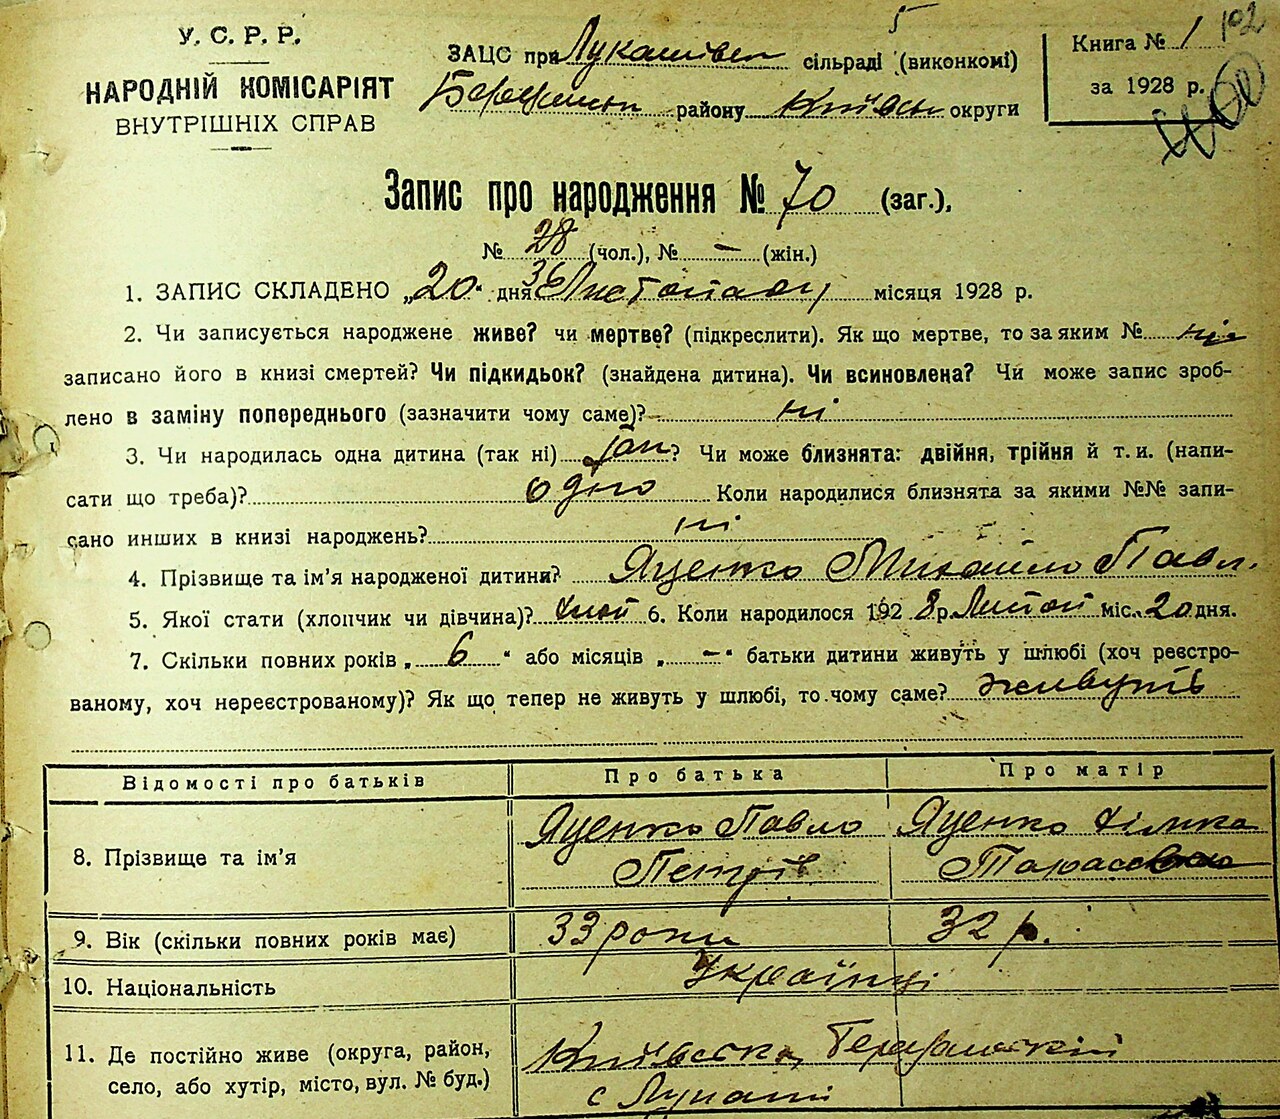 У. С. Р. Р.
НАРОДНІЙ КОМІСАРІЯТ
ВНУТРІШНІХ СПРАВ
ЗАЦС при сільраді (виконкомі)
району округи
5
Книга № 1
за 1928 р.
102
Запис про народження № 70 (заг.),
№ 28 (чол.), № – (жін.)
36
1. ЗАПИС СКЛАДЕНО „20“ дня Листопаду місяця 1928 р.
2. Чи записується народжене живе? чи мертве? (підкреслити). Як що мертве, то за яким № ні
записано його в книзі смертей? Чи підкидьок? (знайдена дитина). Чи всиновлена? Чи може запис зроб-
лено в заміну попереднього (зазначити чому саме)? ні
3. Чи народилась одна дитина (так ні) ? Чи може близнята: двійня, трійня й т. и. (напи-
сати що треба)? одно Коли народилися близнята за якими №№ запи-
сано инших в книзі народжень? ні
4. Прізвище та ім'я народженої дитини? Яценко Михайло Павл.
5. Якої стати (хлопчик чи дівчина)? 6. Коли народилося 1928 р. Листоп міс. 20 дня.
7. Скільки повних років „6“ або місяців „–“ батьки дитини живуть у шлюбі (хоч реєстро-
ваному, хоч нереєстрованому)? Як що тепер не живуть у шлюбі, то чому саме? живуть
Відомості про батьків Про батька Про матір
8. Прізвище та ім'я Яценко Павло Яценко
9. Вік (скільки повних років має) 33 роки 32 р.
10. Національність Українці
11. Де постійно живе (округа, район,
село, або хутір, місто, вул. № буд.)
с